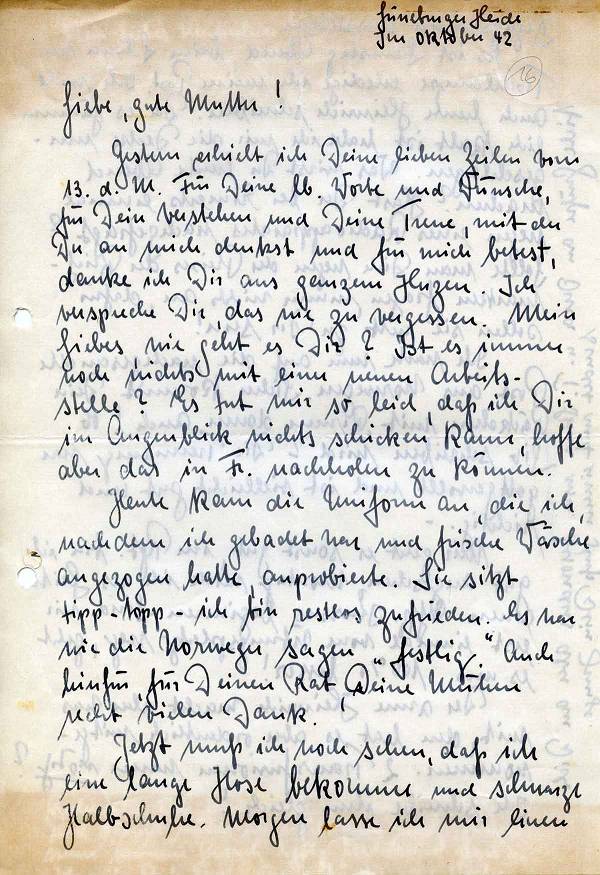 Lüneburger Heide
Im Oktober 42
16
Liebe, gute Mutter!
Gestern erhielt ich Deine lieben Zeilen vom
13. d. M. Für Deine lb. Worte und Wünsche,
für Dein Verstehen und Deine Treue, mit der
Du an mich denkst und für mich betest,
danke ich Dir aus ganzem Herzen. Ich
verspreche Dir, das nie zu vergessen. Mein
Liebes wie geht es Dir? Ist es immer
noch nichts mit einer neuen Arbeits-
stelle? Es tut mir so leid, daß ich Dir
im Augenblick nichts schicken kann, hoffe
aber das in Fr. nachholen zu können.
Heute kam die Uniform an, die ich,
nachdem ich gebadet war und frische Wäsche
angezogen hatte, anprobierte. Sie sitzt
tipp-topp - ich bin restlos zufrieden. Es war
wie die Norweger sagen „festlig." Auch
hierfür, für Deinen Rat, Deine Mühen
recht vielen Dank.
Jetzt muß ich noch sehen, daß ich
eine lange Hose bekomme und schwarze
Halbschuhe. Morgen lasse ich mir einen